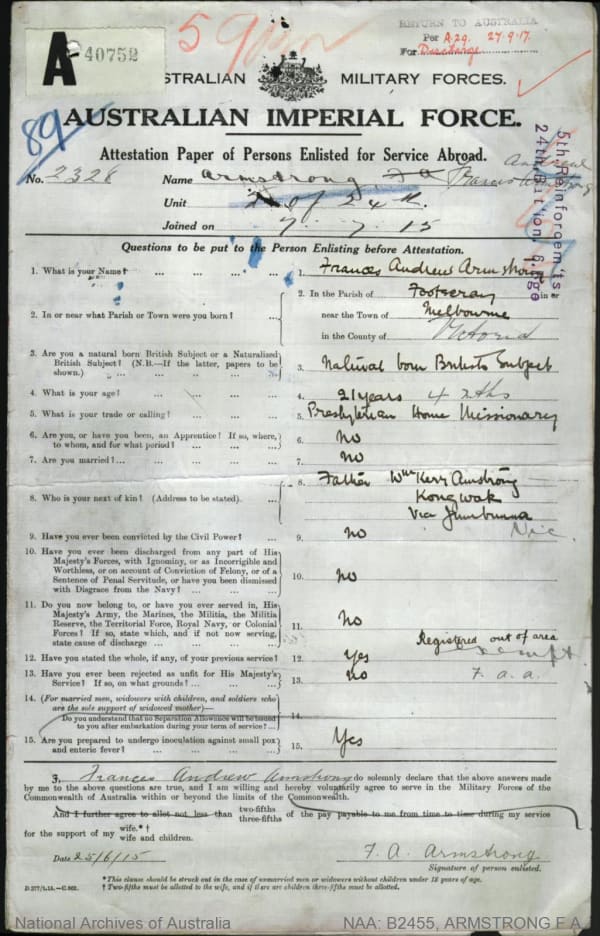 RETURN TO AUSTRALIA
Per A.29. 27.9.17.
For Discharge
A 40752
AUSTRALIAN MILITARY FORCES.
AUSTRALIAN IMPERIAL FORCE.
89
Attestation Paper of Persons Enlisted for Service Abroad.
No. 2328 Name Armstrong, Francis Andrew
Unit of 24th
Joined on 7.7.15
5th Reinforcements
24th Battion 6.Bge
Questions to be put to the Person Enlisting before Attestation.
1. What is your Name? ... ... ... ... 1. Frances Andrew Armstrong
2. In or near what Parish or Town were you born? ... 2. In the Parish of Footscray in or
near the Town of Melbourne
in the County of Victoria
3. Are you a natural born British Subject or a Naturalized
British Subject? (N.B.—If the latter, papers to be
shown.) ... ... ... ... 3. Natural born British Subject
4. What is your age? ... ... ... ... 4. 21 years 4 mths
5. What is your trade or calling? ... ... ... 5. Presbyterian Home Missionary
6. Are you, or have you been, an Apprentice? If so, where,
to whom, and for what period? ... ... ... 6. No
7. Are you married?... ... ... ... 7. No
8. Who is your next of kin? (Address to be stated) ... 8. Father Wm Kerr Armstrong
Kongwak
Via Jumbunna
Vic.
9. Have you ever been convicted by the Civil Power? ... 9. No
10. Have you ever been discharged from any part of His
Majesty's Forces, with Ignominy, or as Incorrigible and
Worthless, or on account of Conviction of Felony, or of a
Sentence of Penal Servitude, or have you been dismissed
with Disgrace from the Navy? ... ... ... 10. No
11. Do you now belong to, or have you ever served in, His
Majesty's Army, the Marines, the Militia, the Militia
Reserve, the Territorial Force, Royal Navy, or Colonial
Forces? If so, state which, and if not now serving,
state cause of discharge ... ... ... 11. No
Registered out of area
Exempt
12. Have you stated the whole, if any, of your previous service? 12. Yes
13. Have you ever been rejected as unfit for His Majesty's
Service? If so, on what grounds? ... ... ... 13. No F. A. A.
14. (For married men, widowers with children, and soldiers who
are the sole support of widowed mother)—
Do you understand that no Separation Allowance will be issued
to you after embarkation during your term of service?... 14.
15. Are you prepared to undergo inoculation against small pox
and enteric fever? ... ... ... ... 15. Yes
I, Frances Andrew Armstrong do solemnly declare that the above answers made
by me to the above questions are true, and I am willing and hereby voluntarily agree to serve in the Military Forces of the
Commonwealth of Australia within or beyond the limits of the Commonwealth.
And I further agree to allot not less than two-fifths three-fifths of the pay payable to me from time to time during my service
for the support of my wife.*† wife and children.
Date 25/6/15
F. A. Armstrong
Signature of person enlisted.
*This clause should be struck out in the case of unmarried men or widowers without children under 18 years of age.
D.377/1.15.—C.862. †Two-fifths must be allotted to the wife, and if there are children three-fifths must be allotted.
National Archives of Australia NAA: B2455, ARMSTRONG F A